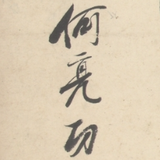 何亮功